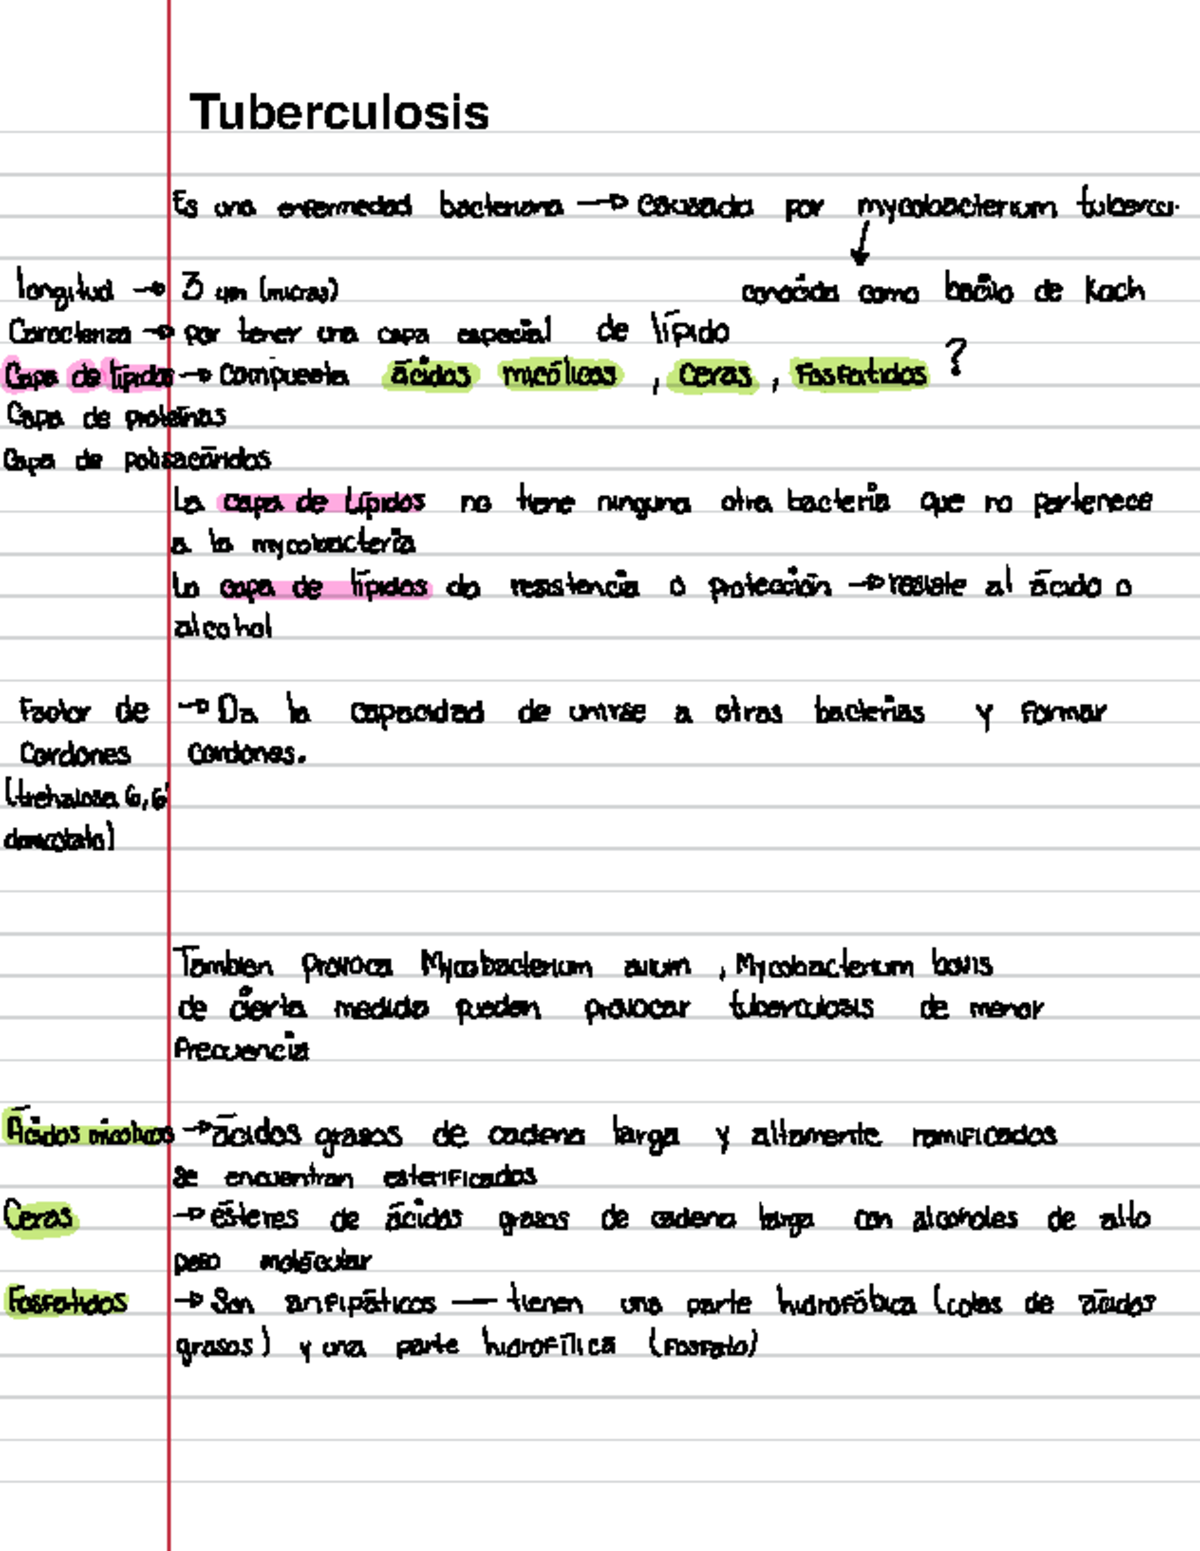 Tuberculosis
Es una enfermedad bacteriana → causada por mycobacterium tubercu.
longitud → 3 um (micras) conocida como bacilo de Koch
Caracteriza → por tener una capa especial de lípido
Capa de lípidos → Compuesta ácidos micólicos , Ceras , Fosfatidos ?
Capa de proteínas
Capa de polisacáridos
La capa de Lípidos no tiene ninguna otra bacteria que no pertenece
a la mycobacteria
La capa de lípidos da resistencia o protección → resiste al ácido o
alcohol
Factor de → Da la capacidad de unirse a otras bacterias y formar
Cordones cordones.
(trehalosa 6,6'
dimicolato)
Tambien provoca Mycobacterium avium , Mycobacterium bovis
de cierta medida pueden provocar tuberculosis de menor
frecuencia
Ácidos micolicos → ácidos grasos de cadena larga y altamente ramificados
se encuentran esterificados
Ceras → ésteres de ácidos grasos de cadena larga con alcoholes de alto
peso molécular
Fosfatidos → Son anfipáticos — tienen una parte hidrofóbica (colas de ácidos
grasos) y una parte hidrofílica (fosfato)